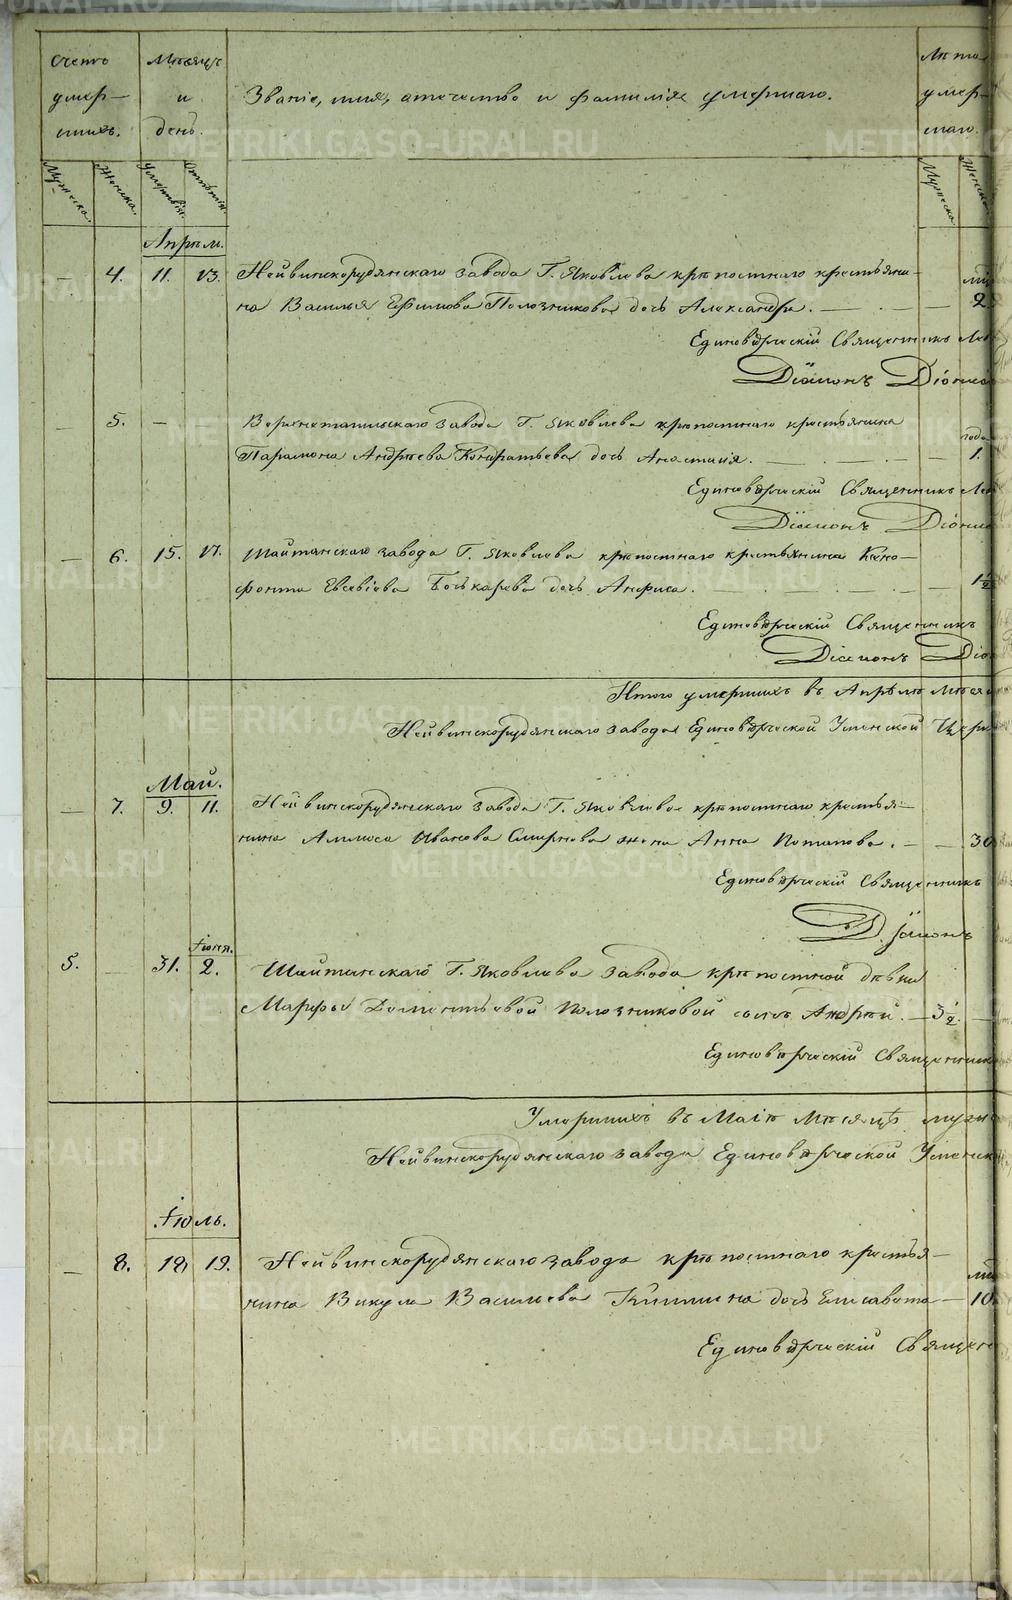 Счетъ умер- шихъ.
Мѣсяцъ и день.
Званіе, имя, отечество и фамилія умершаго.
Лѣта умер- шаго.
Мужеска. Женска. Умертвія. Отпѣтія.
Мужеска Женска
Апрѣль.
— 4. 11. 13. Нейвинскорудянскаго завода Г. Яковлева крѣпостнаго крестьяни-
на Василья Ефимова Полозникова дочь Александра. — 2
Единовѣрческій Священникъ
Діомонъ
— 5. — Верхнетагильскаго завода Г. Яковлева крѣпостнаго крестьянина
года
Парамона Андрѣева Кондратьева дочь Анастасія. — 1.
Единовѣрческій Священникъ
— 6. 15. 17. Шайтанскаго завода Г. Яковлева крѣпостнаго крестьянина Ксено-
фонта Евсевіева дочь Анфиса. — 1½
Единовѣрческій Священникъ
Итого умершихъ въ Апрѣлѣ
Нейвинскорудянскаго завода Единовѣрческой Успенской
Май.
— 7. 9. 11. Нейвинскорудянскаго завода Г. Яковлева крѣпостнаго крестья-
нина Аммоса Иванова Смирнова жена Анна Потапова. — 30
Единовѣрческій Священникъ
Іюня.
5. — 31. 2. Шайтанскаго Г. Яковлева завода крѣпостной дѣвки
Марфы Дометьевой Полозниковой сынъ Андрей. — 3½. —
Единовѣрческій
Умершихъ въ Маіѣ Мѣсяцѣ
Нейвинскорудянскаго завода Единовѣрческой
Іюль.
— 8. 18 19. Нейвинскорудянскаго завода крѣпостнаго крестья-
нина Викула Васильева дочь Елисавета — 10
Единовѣрческій
METRIKI.GASO-URAL.RU